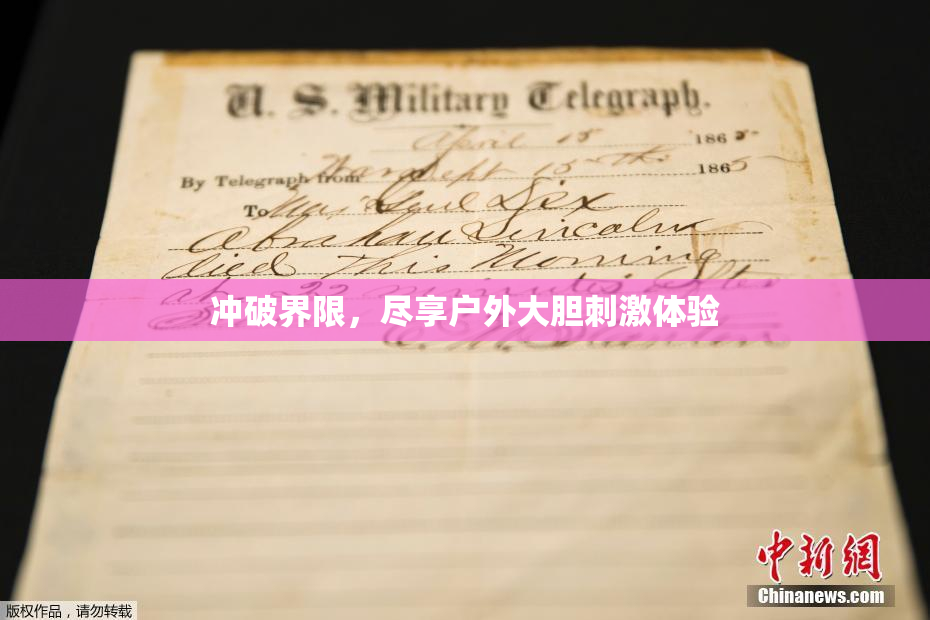 U. S. Military Telegraph.
April 15 1865
By Telegraph from War Dept 15th 1865
To Maj Genl Dix
Abraham Lincoln
died This Morning
at 22 minutes after
冲破界限，尽享户外大胆刺激体验
中新网
Chinanews.com
版权作品，请勿转载